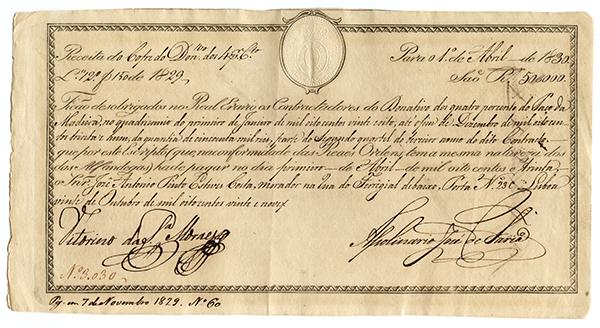 Receita do Cofre do Don.vo dos 4 p.r C.to
Para o 1.º de Abril de 1830
L.º 12 f 150 de 1829.
Saõ R.s 50$000.
Ficaõ desobrigados no Real Erario os Contractadores do Donativo dos quatro porcento do Paço da
Madeira, no quadriennio do primeiro de Janeiro de mil oito centos vinte oito, até o fim de Dezembro de mil oito cen
tos trinta e hum, da quantia de cincoenta mil reis, parte do segundo quartel do terceiro anno do dito Contracto
que por este Escripto (que, na conformidade das Reaes Ordens, tem a mesma natureza dos
das Alfandegas) ha de pagar no dia primeiro de Abril de mil oito centos e trinta
o Sn.r José Antonio Pinto Esteves Costa, morador na Rua do Ferrigial debaixo, Porta N. 23 C. Lisboa
vinte de Outubro de mil oito centos vinte e nove
Vitorino da S.a Moraes
Apolinario José de Faria
N.º 3.030
Pg. em 7 de Novembro 1829. N.º 60